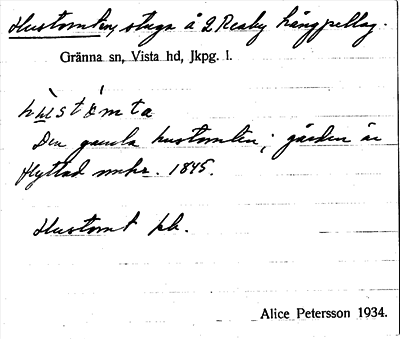 Hustomten, stuga å 2 Reaby hängpellag.
Gränna sn, Vista hd, Jkpg. l.
hùstòmta
Den gamla hustomten; gården är
flyttad omkr. 1845.
Hustomt pl.
Alice Petersson 1934.